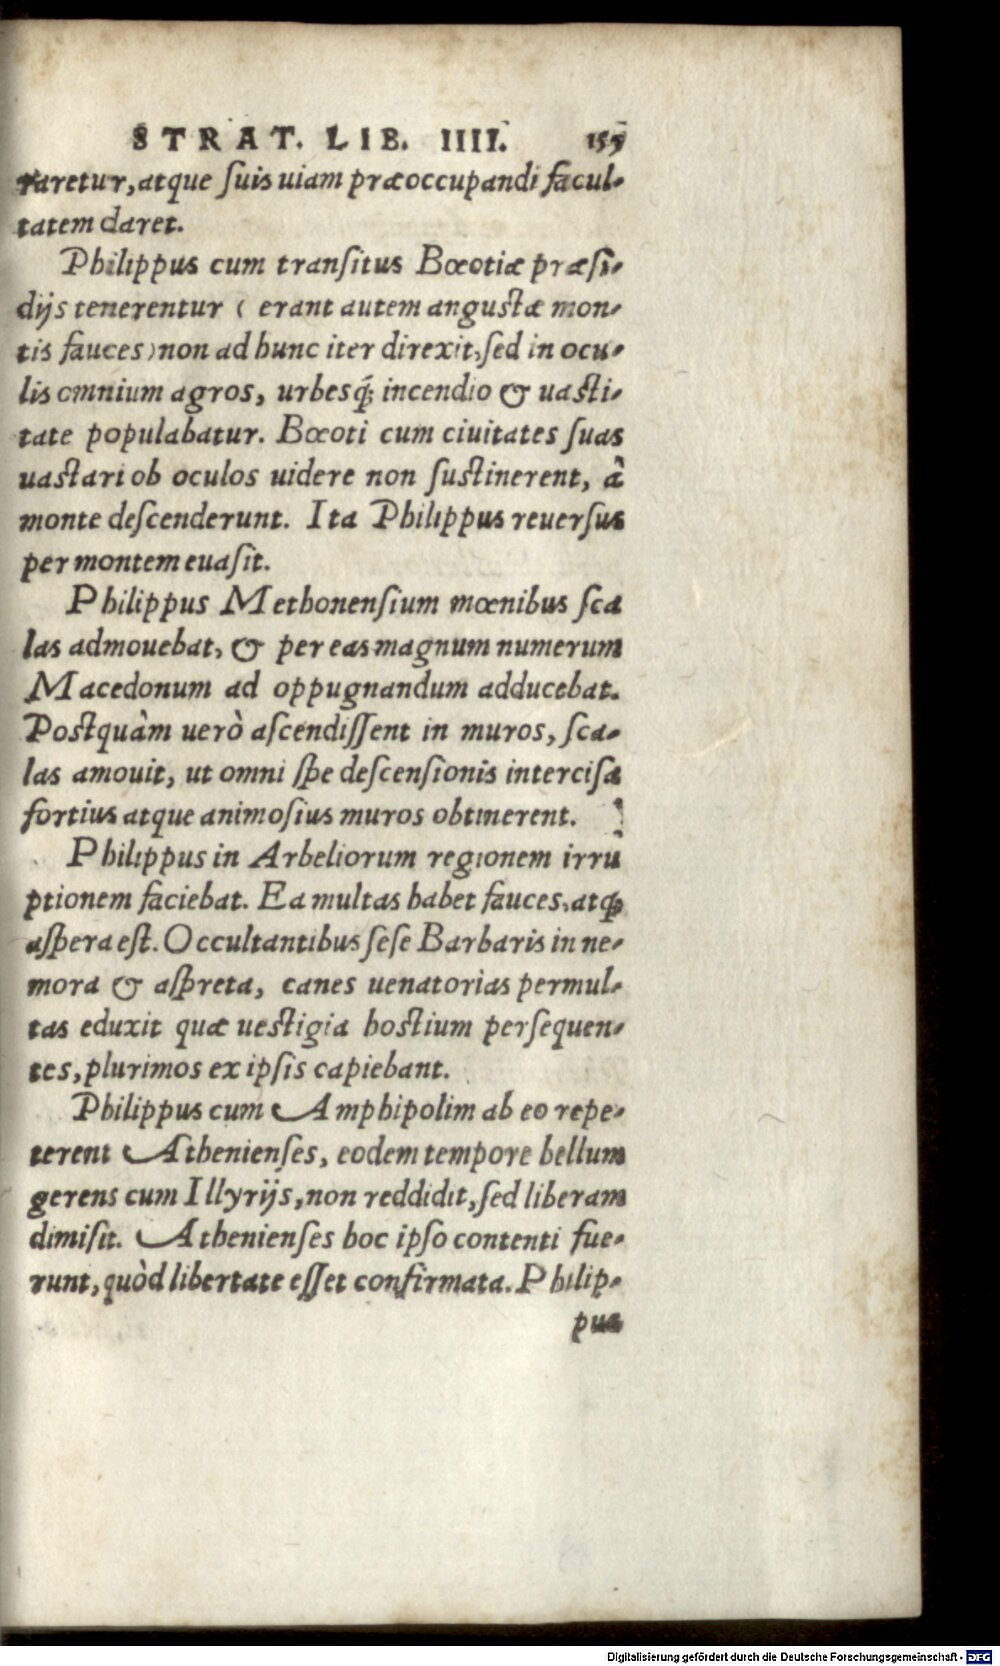 STRAT. LIB. IIII. 155
raretur, atque ſuis uiam præoccupandi facul-
tatem daret.
Philippus cum tranſitus Bœotiæ præſi-
dijs tenerentur ( erant autem anguſtæ mon-
tis fauces ) non ad hunc iter direxit, ſed in ocu-
lis omnium agros, urbesq́; incendio & uaſti-
tate populabatur. Bœoti cum ciuitates ſuas
uaſtari ob oculos uidere non ſuſtinerent, à
monte deſcenderunt. Ita Philippus reuerſus
per montem euaſit.
Philippus Methonenſium mœnibus ſca
las admouebat, & per eas magnum numerum
Macedonum ad oppugnandum adducebat.
Poſtquàm uerò aſcendiſſent in muros, ſca-
las amouit, ut omni ſpe deſcenſionis interciſa
fortius atque animoſius muros obtinerent.
Philippus in Arbeliorum regionem irru
ptionem faciebat. Ea multas habet fauces, atq;
aſpera eſt. Occultantibus ſeſe Barbaris in ne-
mora & aſpreta, canes uenatorias permul-
tas eduxit quæ ueſtigia hoſtium perſequen-
tes, plurimos ex ipſis capiebant.
Philippus cum Amphipolim ab eo repe-
terent Athenienſes, eodem tempore bellum
gerens cum Illyrijs, non reddidit, ſed liberam
dimiſit. Athenienſes hoc ipſo contenti fue-
runt, quòd libertate eſſet confirmata. Philip-
pus
Digitalisierung gefördert durch die Deutsche Forschungsgemeinschaft - DFG